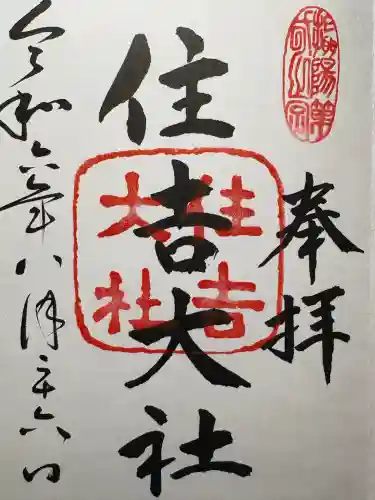 奉拝
住吉大社
住吉
大社
令和六年八月二十六日